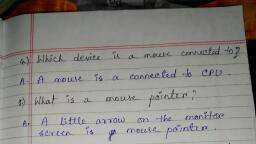 Q) Which device is a mouse connected to?
A. A mouse is a connected to CPU.
Q) What is a mouse pointer?
A. A little arrow on the monitor
screen is mouse pointer.